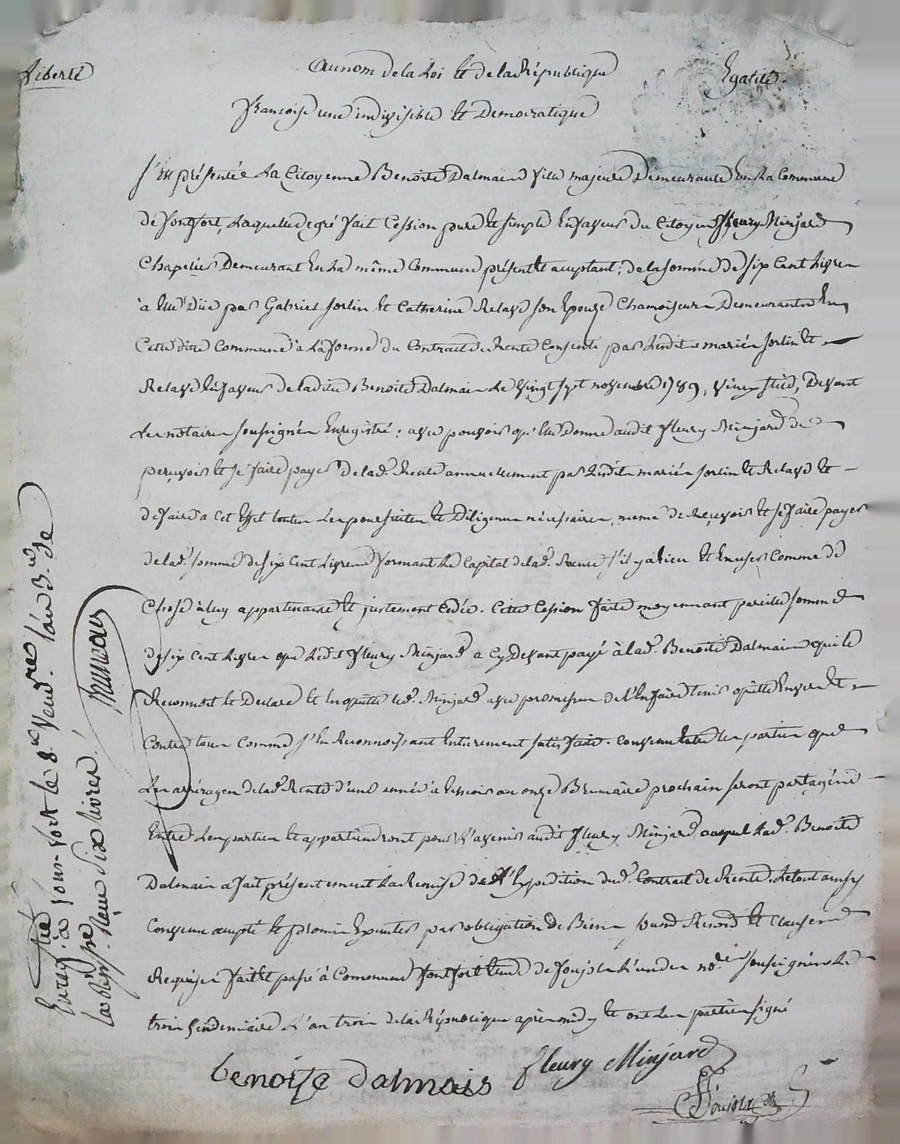 Liberté
au nom de la Loi et de la République
Egalité.
francoise une indivisible et Democratique
S'est présentée La Citoyenne Benoite Dalmais fille majeure Demeurante En La Commune
de fontfort, Laquelle de gré fait Cession pure et simple En faveur du Citoyen fleury Minjard
Chapelier Demeurant En La même Commune présent et acceptant; de la somme de six Cent Livres
à Elle Düe par Gabriel Jorlin et Catherine Relave son Epouse Chamoiseur Demeurants En
Cette ditte Commune a La forme du Contract de Rente Consenti par Lesdits mariés Jorlin et
Relave En faveur de la dite Benoite Dalmais Le vingt sept novembre 1789, vieux stile, Devant
Le notaire soussigné Enregistré; avec pouvoir qu'Elle Donne audit fleury Minjard de
percevoir et se faire payer de lad. Rente annuellement par Lesdits mariés Jorlin et Relave et
de faire a Cet Effet toutes Les poursuites et Diligences nécessaires, meme de Recevoir et se faire payer
de lad. somme de six Cent Livres formant Le Capital de lad. Rente s'il y a Lieu et En user Comme de
Chose à luy appartenante et justement Cédée. Cette Cession faite moyennant pareille somme
de six Cent Livres que Ledit fleury Minjard a Cy Devant payé à lad. Benoite Dalmais qui le
Reconnoit et Declare et En quitte led. Minjard avec promesse de l'En faire tenir quitte Envers et
Contre tous Comme s'En Reconnoissant Entierement satisfaite. Convenu Entre Les parties que
Les arrérages de lad. Rente d'une année à Echoir au onze Brumaire prochain seront partagés
Entre Les parties et appartiendront pour L'avenir audit fleury Minjard auquel Lad. Benoite
Dalmais a fait présentement La Remise de l'Expédition dud. Contrat de Rente. Le tout ainsy
Convenu accepté et promis Executer par obligation de Biens
Requises fait et passé à Commune fontfort Etude de Foujols L'un des no.res soussignés Le
trois vendemiaire L'an trois de la République après midy et ont Les parties signé
benoite dalmais
fleury Minjard
Foujols
Enreg.tré à fonfort le 8 Vend.re l'an 3. de
la Rép. Reçu Six livres